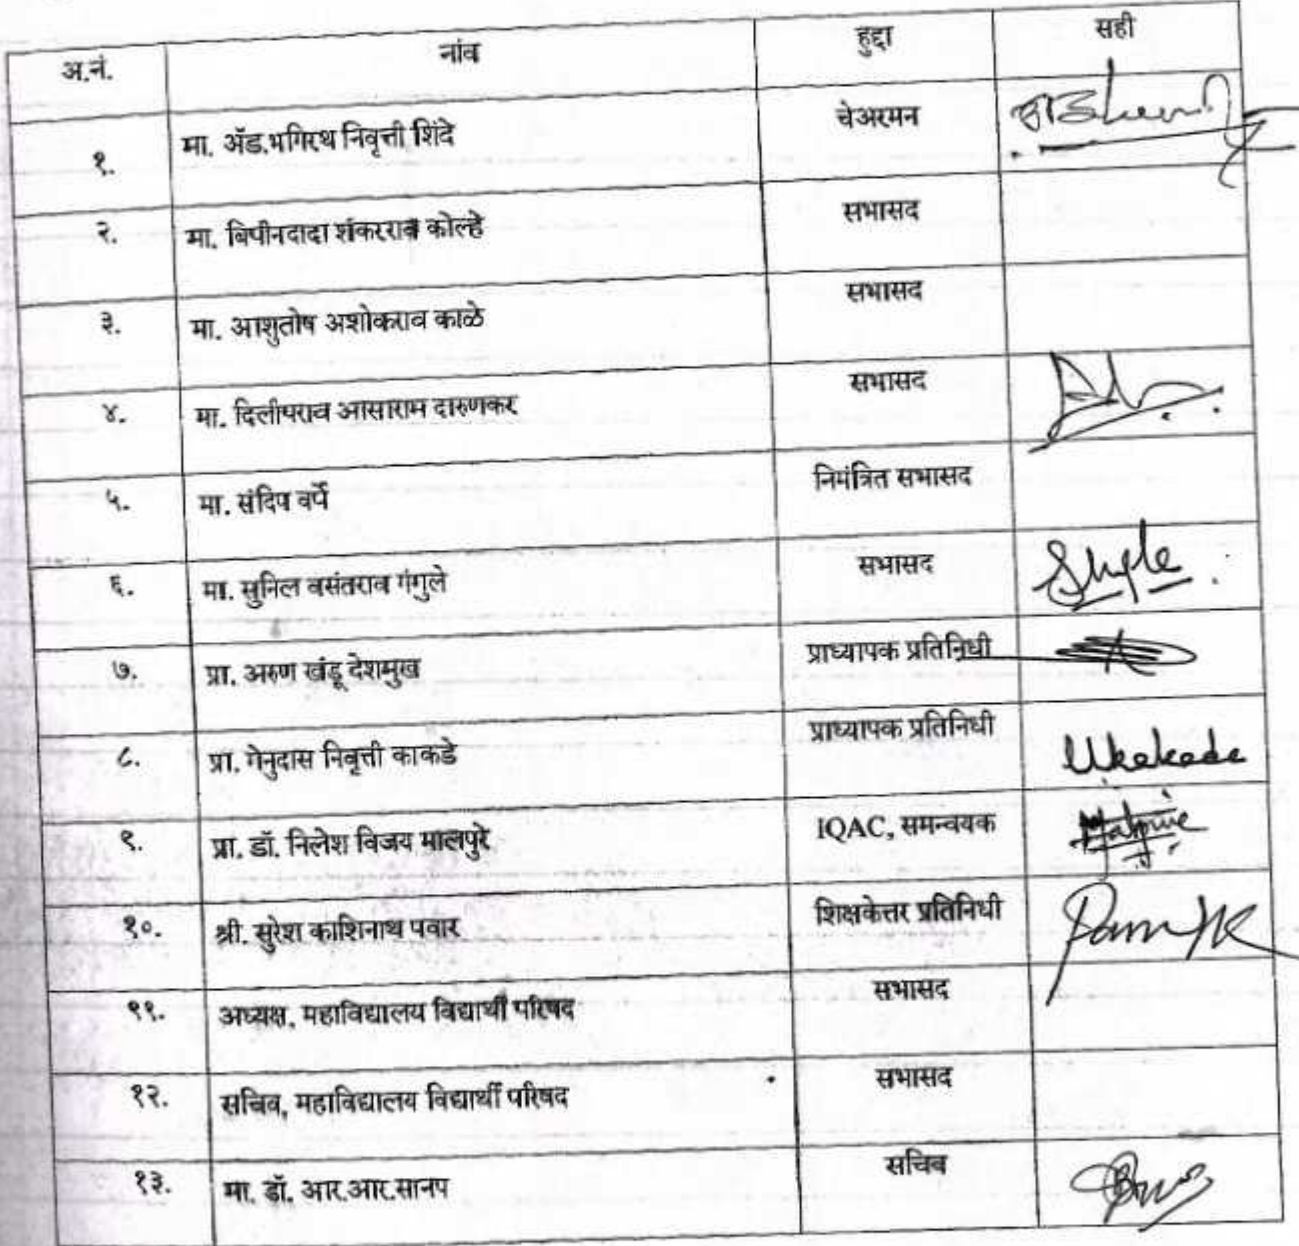 अ.नं. नांव हुद्दा सही
१. मा. ॲड.भगिरथ निवृत्ती शिंदे चेअरमन
२. मा. बिपीनदादा शंकरराव कोल्हे सभासद
३. मा. आशुतोष अशोकराव काळे सभासद
४. मा. दिलीपराव आसाराम दारुणकर सभासद
५. मा. संदिप वर्पे निमंत्रित सभासद
६. मा. सुनिल वसंतराव गंगुले सभासद
७. प्रा. अरुण खंडू देशमुख प्राध्यापक प्रतिनिधी
८. प्रा. गेनुदास निवृत्ती काकडे प्राध्यापक प्रतिनिधी
९. प्रा. डॉ. निलेश विजय मालपुरे IQAC, समन्वयक
१०. श्री. सुरेश काशिनाथ पवार शिक्षकेत्तर प्रतिनिधी
११. अध्यक्ष, महाविद्यालय विद्यार्थी परिषद सभासद
१२. सचिव, महाविद्यालय विद्यार्थी परिषद सभासद
१३. मा. डॉ. आर.आर.सानप सचिव